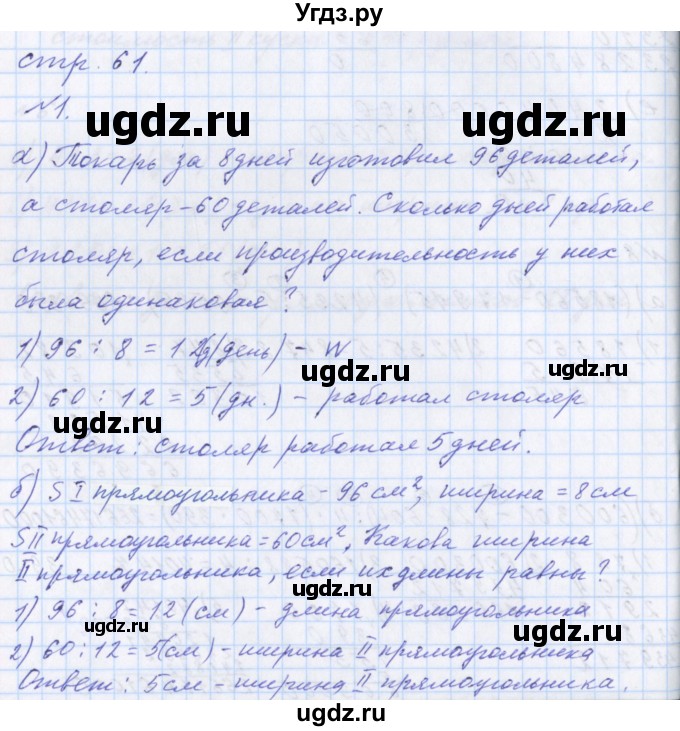 Угдз.ру
стр. 61.
№1.
ugdz.ru ugdz.ru
а) Токарь за 8 дней изготовил 96 деталей,
а столяр - 60 деталей. Сколько дней работал
столяр, если производительность у них
ugdz.ru ugdz.ru
была одинаковая?
1) 96 : 8 = 12 (д/день) - W
ugdz.ru
2) 60 : 12 = 5 (дн.) - работал столяр
Ответ: столяр работал 5 дней.
ugdz.ru ugdz.ru
б) S I прямоугольника - 96 см², ширина = 8 см
S II прямоугольника = 60 см², Какова ширина
II прямоугольника, если их длины равны?
1) 96 : 8 = 12 (см) - длина прямоугольника
ugdz.ru ugdz.ru
2) 60 : 12 = 5 (см) - ширина II прямоугольника
Ответ: 5 см - ширина II прямоугольника.
ugdz.ru